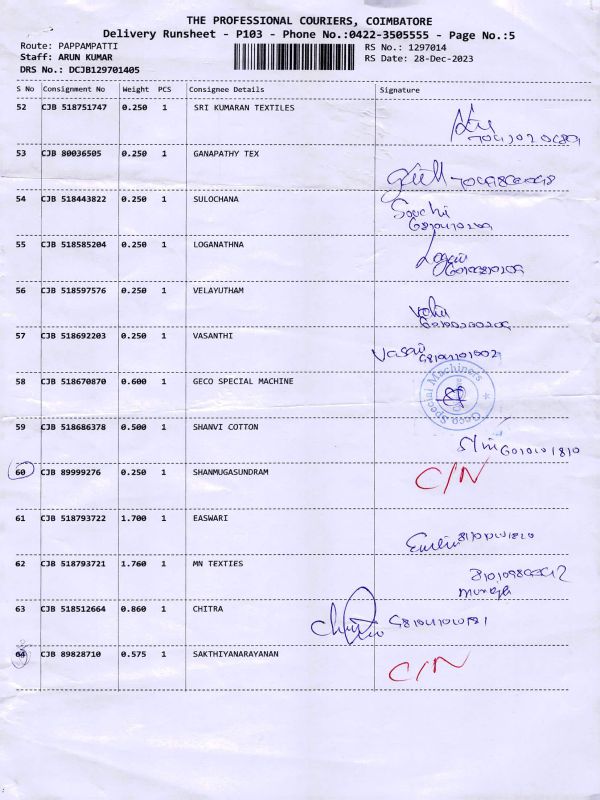 THE PROFESSIONAL COURIERS, COIMBATORE
Delivery Runsheet - P103 - Phone No.:0422-3505555 - Page No.:5
Route: PAPPAMPATTI
RS No.: 1297014
Staff: ARUN KUMAR
RS Date: 28-Dec-2023
DRS No.: DCJB129701405
S No Consignment No Weight PCS Consignee Details Signature
52 CJB 518751747 0.250 1 SRI KUMARAN TEXTILES
53 CJB 80036505 0.250 1 GANAPATHY TEX
54 CJB 518443822 0.250 1 SULOCHANA
55 CJB 518585204 0.250 1 LOGANATHNA
56 CJB 518597576 0.250 1 VELAYUTHAM
57 CJB 518692203 0.250 1 VASANTHI
58 CJB 518670870 0.600 1 GECO SPECIAL MACHINE
Geco Special Machiners
59 CJB 518686378 0.500 1 SHANVI COTTON
60 CJB 89999276 0.250 1 SHANMUGASUNDRAM C/N
61 CJB 518793722 1.700 1 EASWARI
62 CJB 518793721 1.760 1 MN TEXTIES
63 CJB 518512664 0.860 1 CHITRA
64 CJB 89828710 0.575 1 SAKTHIYANARAYANAN C/N